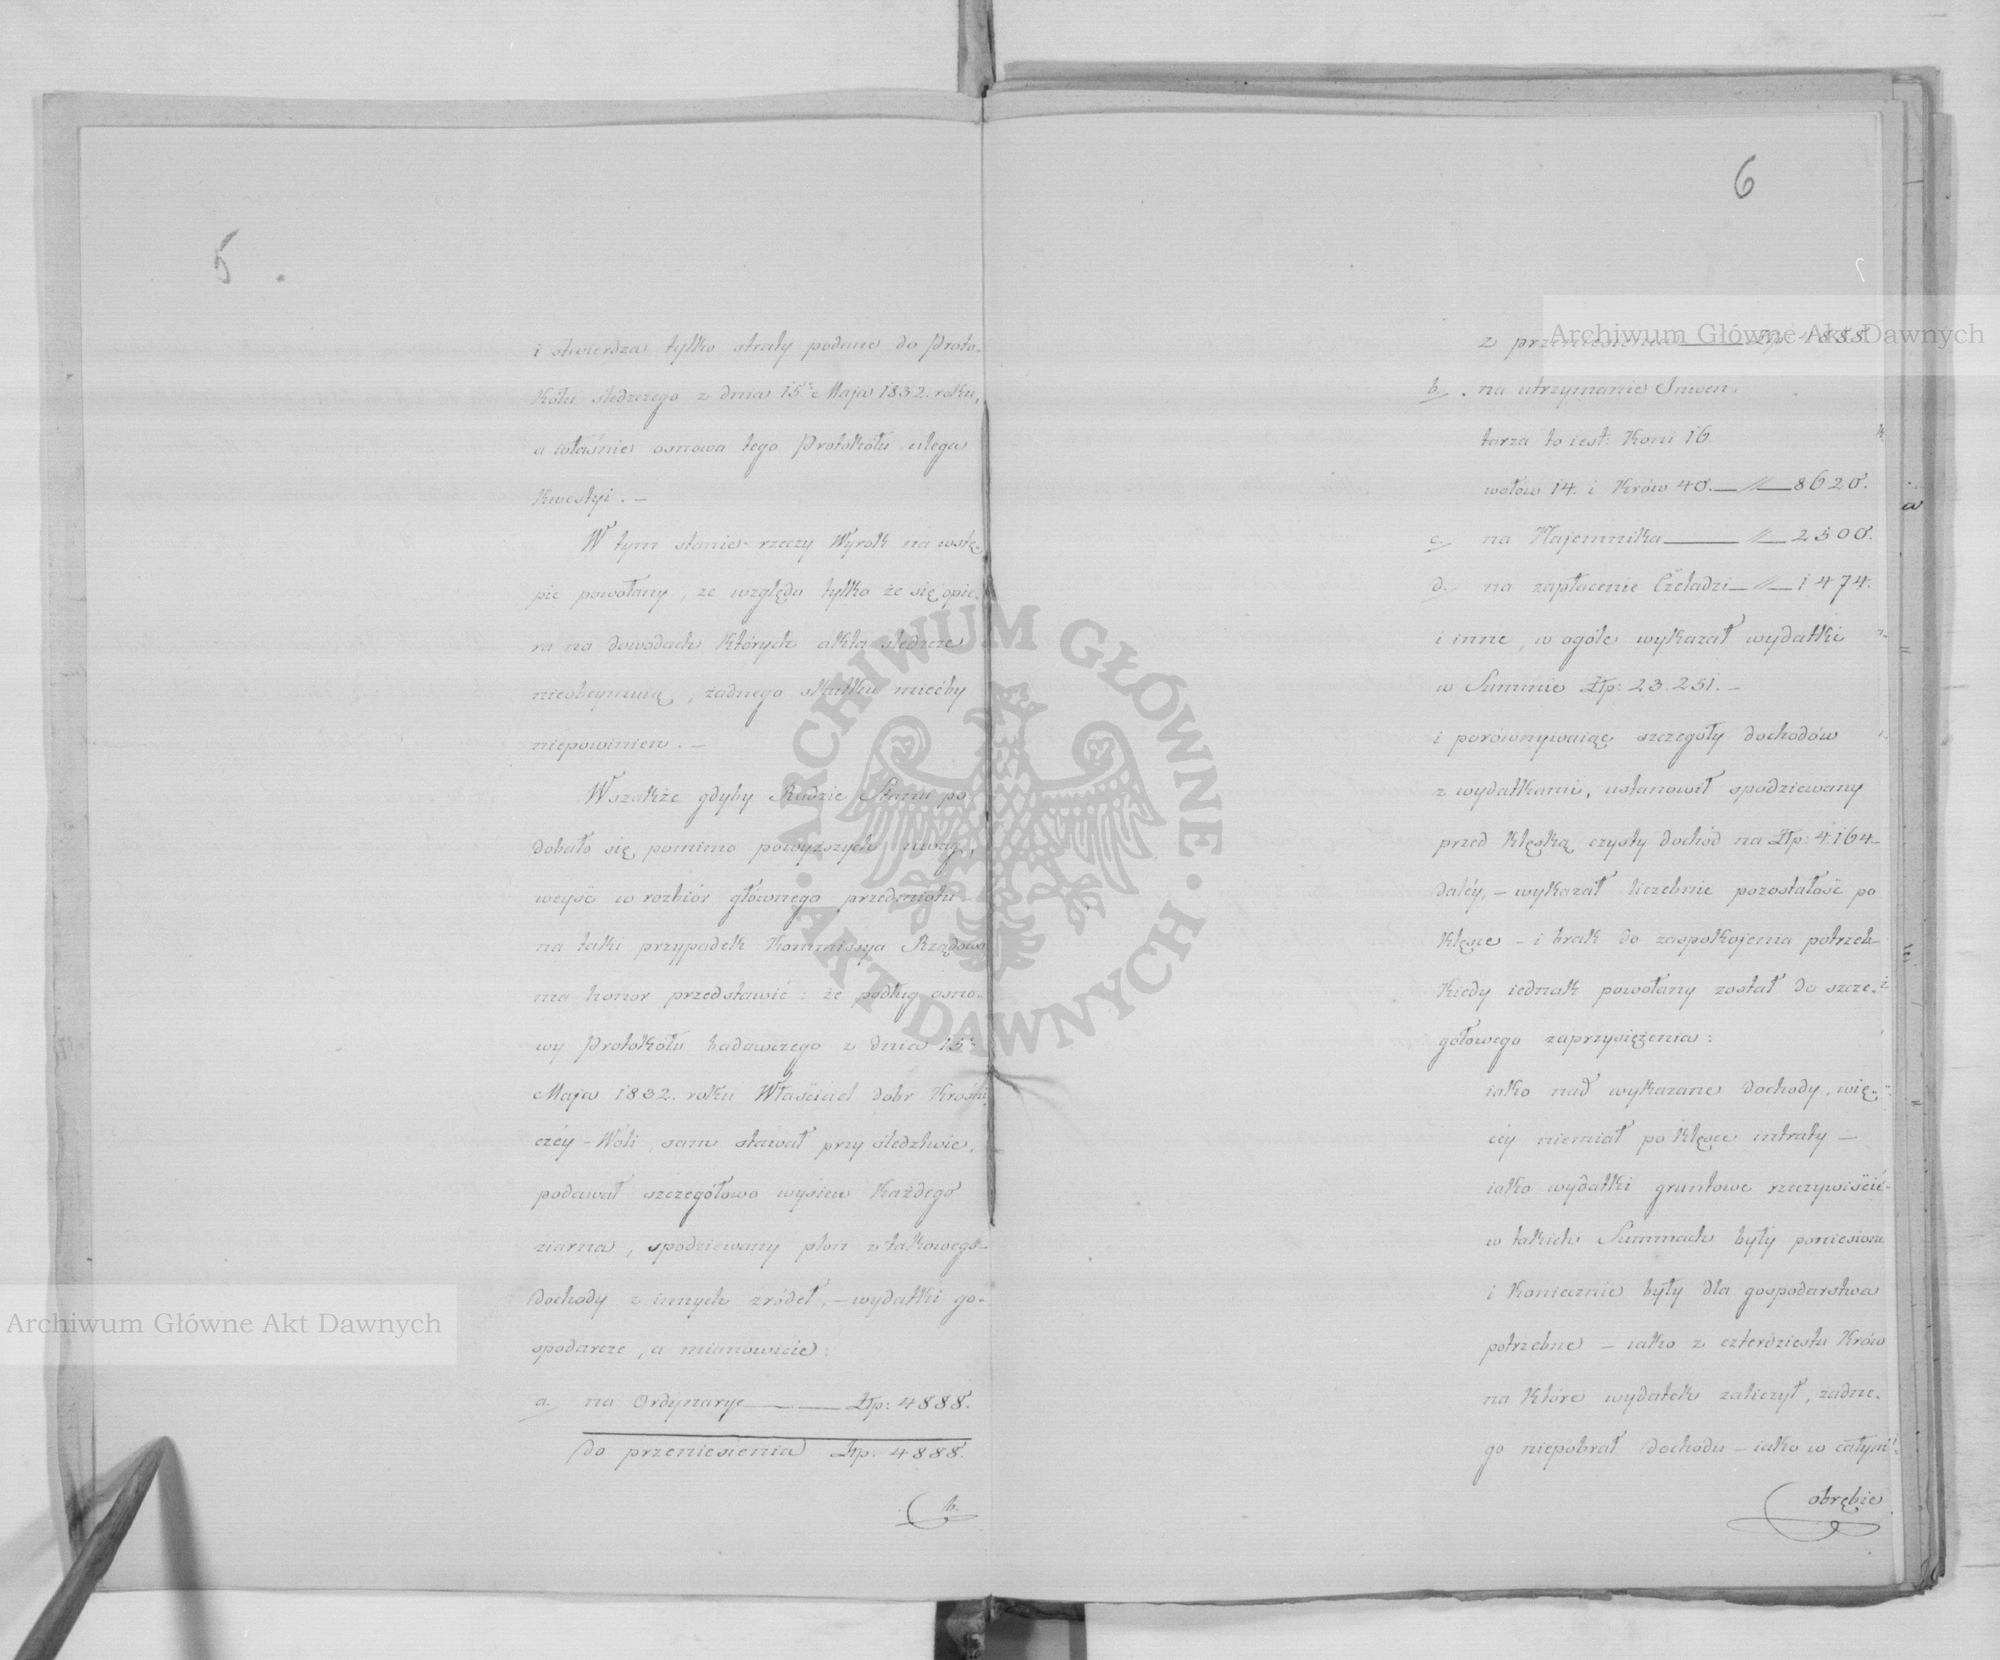 5
i stwierdza tylko straty podane do Proto-
kółu śledczego z dnia 15º Maja 1832. roku,
a właśnie osnowa tego Protokółu ulega
kwestyi. —
W tym stanie rzeczy Wyrok na wstę-
pie powołany, ze względu tylko że się opie-
ra na dowodach których akta śledcze
nieobeymuią, żadnego skutku miećby
niepowinien. —
Wszakże gdyby Radzie Stanu po
dobało się pomimo powyższych uwag,
weyść w rozbiór głównego przedmiotu
na taki przypadek Kommissya Rządowa
ma honor przedstawić: że podług osno-
wy Protokółu badawczego z dnia 15º
Maja 1832. roku Właściciel dóbr Króśni
czéy-Wóli, sam stawał przy śledztwie,
podawał szczegółowo wysiew każdego
ziarna, spodziewany plon z takowego
dochody z innych źródeł, — wydatki go-
spodarcze, a mianowicie:
a. na Ordynarye — Złp: 4888.
do przeniesienia Złp: 4888.
b.
6
z przeniesienia — Złp: 4888.
b. na utrzymanie Inwen-
tarza to iest: Koni 16.
wołów 14. i Krów 40. — // — 8620.
c. na Najemnika — // — 2500.
d. na zapłacenie Czeladzi — // — 1474.
i inne, w ogóle wykazał wydatki
w Summie Złp: 23.251. —
i porównywaiąc szczegóły dochodów
z wydatkami, ustanowił spodziewany
przed klęską czysty dochód na Złp: 4164—
daléy, — wykazał liczebnie pozostałość po
klęsce — i brak do zaspokojenia potrzeb—
Kiedy iednak powołany został do szcze-
gółowego zaprzysiężenia:
iako nad wykazane dochody, wię-
céy niemiał po klęsce intraty —
iako wydatki gruntowe rzeczywiście
w takich Summach były poniesione
i koniecznie były dla gospodarstwa
potrzebne — iako z czterdziestu Krów
na które wydatek zaliczył, żadne-
go niepobrał dochodu — iako w całym
obrębie
Archiwum Główne Akt Dawnych
Archiwum Główne Akt Dawnych
ARCHIWUM GŁÓWNE · AKT DAWNYCH ·